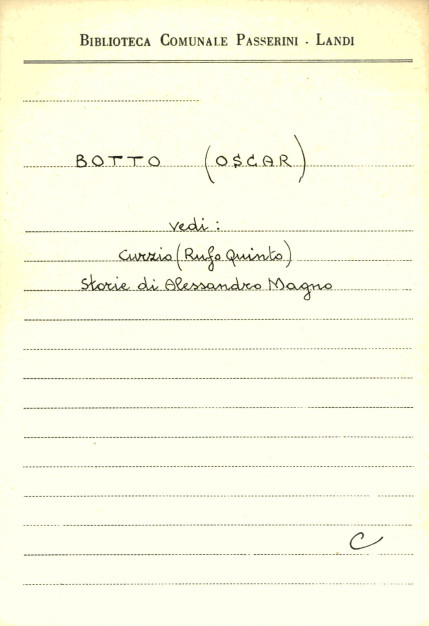 BIBLIOTECA COMUNALE PASSERINI - LANDI
BOTTO (OSCAR)
vedi:
Curzio (Rufo Quinto)
Storie di Alessandro Magno
C